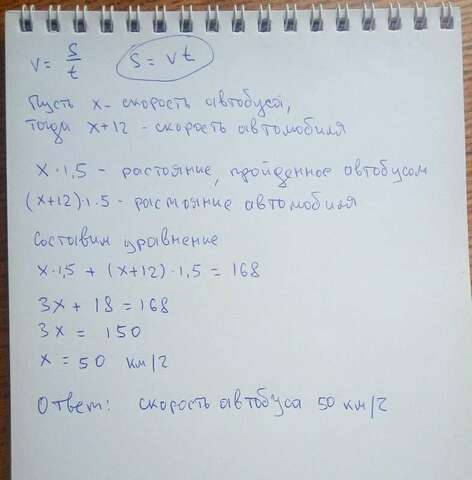 v = s/t   s = vt
Пусть x - скорость автобуса,
тогда x+12 - скорость автомобиля
x·1,5 - растояние, пройденное автобусом
(x+12)·1.5 - растояние автомобиля
Составим уравнение
x·1,5 + (x+12)·1,5 = 168
3x + 18 = 168
3x = 150
x = 50 км/г
Ответ: скорость автобуса 50 км/г